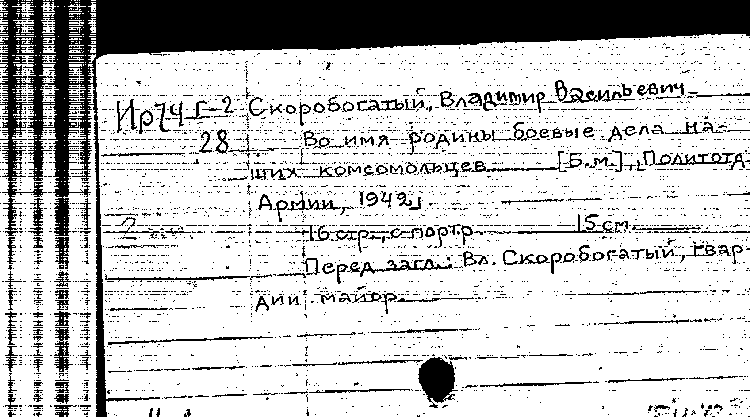 Ир74 Г-2 Скоробогатый, Владимир Васильевич
28 Во имя родины боевые дела на-
ших комсомольцев [Б.м.], Политотд
Армии, 1942
16 стр., с портр. 15 см.
Перед загл.: Вл. Скоробогатый, гвар-
дии майор.